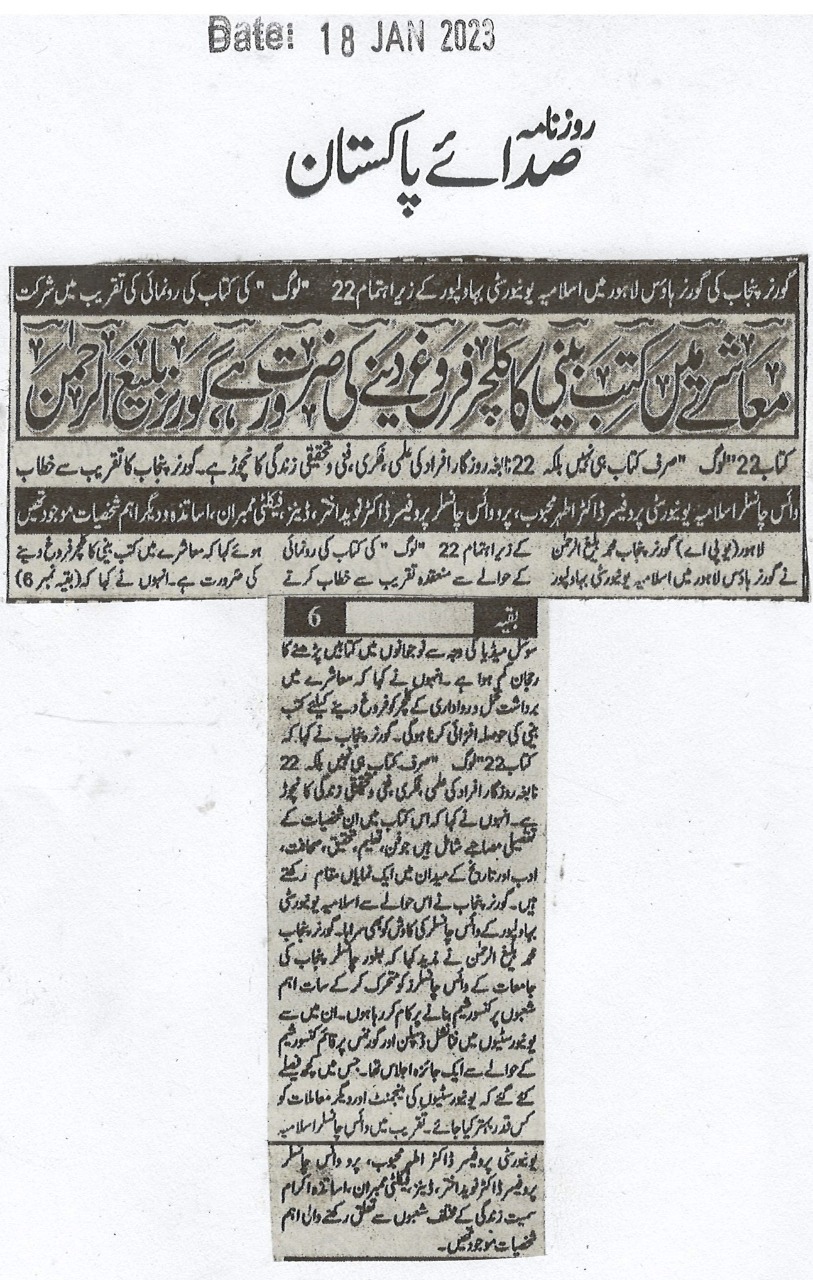 Date: 18 JAN 2023
روزنامہ
صدائے پاکستان
گورنر پنجاب کی گورنر ہاؤس لاہور میں اسلامیہ یونیورسٹی بہاولپور کے زیر اہتمام 22 "لوگ " کی کتاب کی رونمائی کی تقریب میں شرکت
معاشرے میں کتب بینی کا کلچر فروغ دینے کی ضرورت ہے، گورنر بلیغ الرحمٰن
کتاب 22"لوگ " صرف کتاب ہی نہیں بلکہ 22 نابغہ روزگار افراد کی علمی، فکری، فنی و تحقیقی زندگی کا نچوڑ ہے۔ گورنر پنجاب کا تقریب سے خطاب
وائس چانسلر اسلامیہ یونیورسٹی پروفیسر ڈاکٹر اطہر محبوب، پرو وائس چانسلر پروفیسر ڈاکٹر نوید اختر، ڈینز، فیکلٹی ممبران، اساتذہ و دیگر اہم شخصیات موجود تھیں
لاہور (یو پی اے) گورنر پنجاب محمد بلیغ الرحمٰن
نے گورنر ہاؤس لاہور میں اسلامیہ یونیورسٹی بہاولپور
کے زیر اہتمام 22 "لوگ " کی کتاب کی رونمائی
کے حوالے سے منعقدہ تقریب سے خطاب کرتے
ہوئے کہا کہ معاشرے میں کتب بینی کا کلچر فروغ دینے
کی ضرورت ہے۔ انہوں نے کہا کہ (بقیہ نمبر 6)
بقیہ 6
سوشل میڈیا کی وجہ سے نوجوانوں میں کتابیں پڑھنے کا
رجحان کم ہوا ہے۔ انہوں نے کہا کہ معاشرے میں
برداشت تحمل و رواداری کے کلچر کو فروغ دینے کیلئے کتب
بینی کی حوصلہ افزائی کرنا ہوگی۔ گورنر پنجاب نے کہا کہ
کتاب 22"لوگ " صرف کتاب ہی نہیں بلکہ 22
نابغہ روزگار افراد کی علمی، فکری، فنی و تحقیقی زندگی کا نچوڑ
ہے۔ انہوں نے کہا کہ اس کتاب میں ان شخصیات کے
تفصیلی مصاحبے شامل ہیں جو فن، تعلیم، تحقیق، صحافت،
ادب اور تاریخ کے میدان میں ایک نمایاں مقام رکھتے
ہیں۔ گورنر پنجاب نے اس حوالے سے اسلامیہ یونیورسٹی
بہاولپور کے وائس چانسلر کی کاوش کو بھی سراہا۔ گورنر پنجاب
محمد بلیغ الرحمٰن نے مزید کہا کہ بطور چانسلر پنجاب کی
جامعات کے وائس چانسلرز کو متحرک کر کے سات اہم
شعبوں پر کنسورشیم بنانے پر کام کر رہا ہوں۔ ان میں سے
یونیورسٹیوں میں فنانشل ڈسپلن اور گورننس پر قائم کنسورشیم
کے حوالے سے ایک جائزہ اجلاس تھا۔ جس میں کچھ فیصلے
کئے گئے کہ یونیورسٹیوں کی منیجمنٹ اور دیگر معاملات کو
کس قدر بہتر کیا جائے۔ تقریب میں وائس چانسلر اسلامیہ
یونیورسٹی پروفیسر ڈاکٹر اطہر محبوب، پرو وائس چانسلر
پروفیسر ڈاکٹر نوید اختر، ڈینز، فیکلٹی ممبران، اساتذہ اکرام
سمیت زندگی کے مختلف شعبوں سے تعلق رکھنے والی اہم
شخصیات موجود تھیں۔